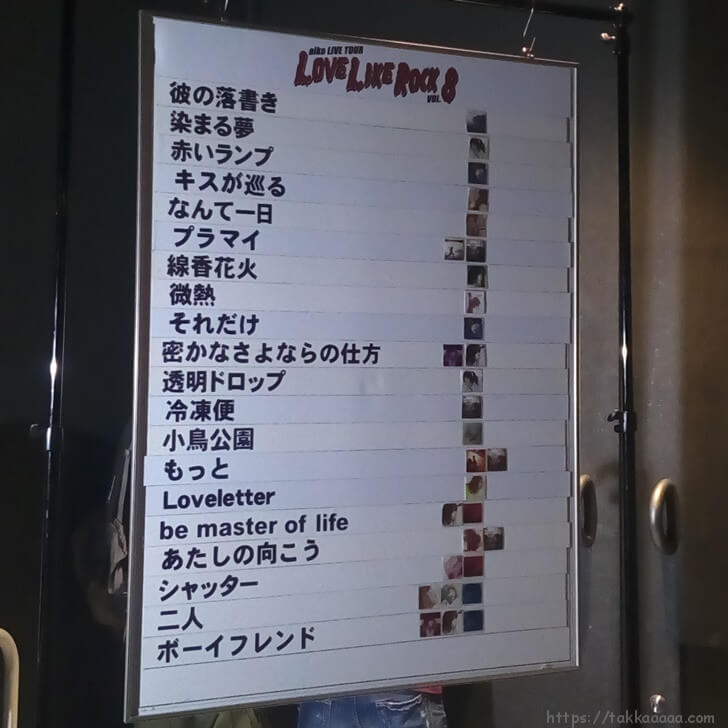 aiko LIVE TOUR
LOVE LIKE ROCK
VOL. 8
彼の落書き
染まる夢
赤いランプ
キスが巡る
なんて一日
プラマイ
線香花火
微熱
それだけ
密かなさよならの仕方
透明ドロップ
冷凍便
小鳥公園
もっと
Loveletter
be master of life
あたしの向こう
シャッター
二人
ボーイフレンド
https://takkaaaaa.com